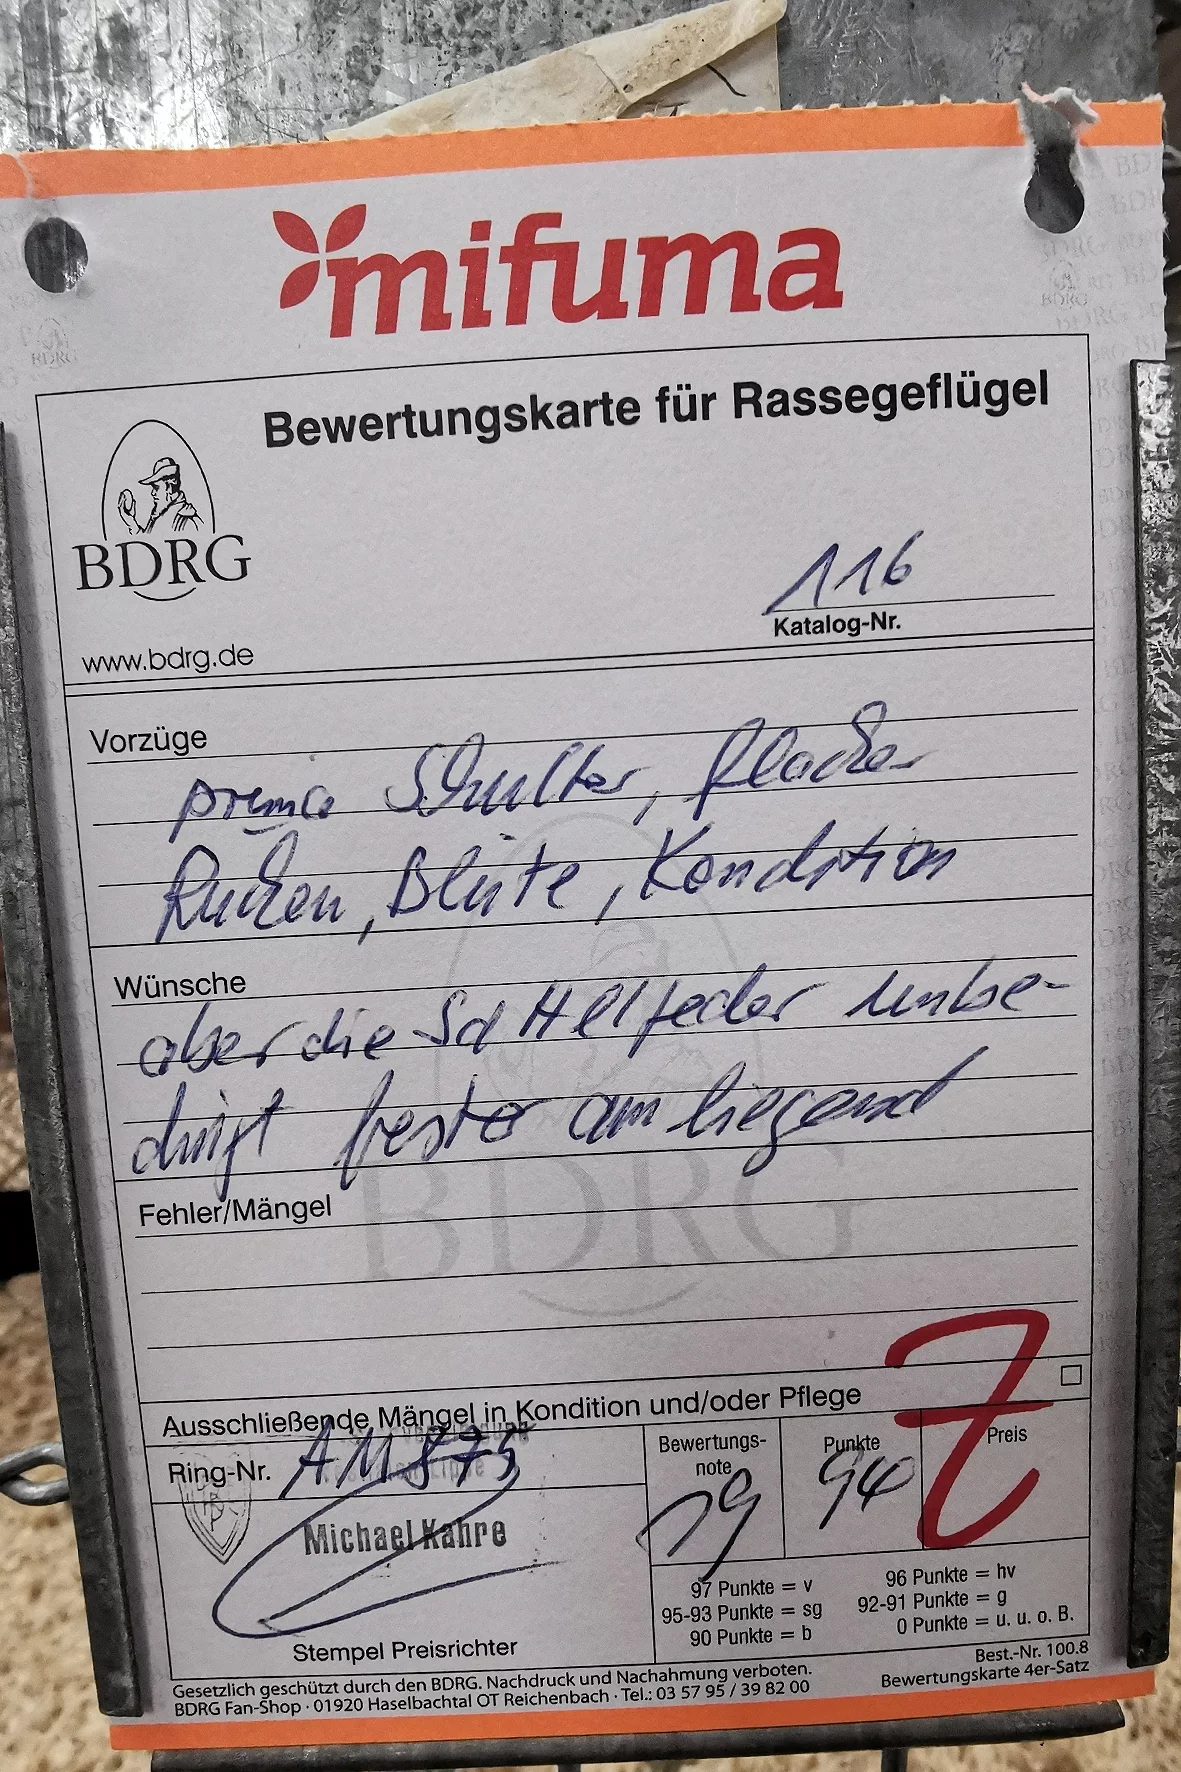 mifuma
Bewertungskarte für Rassegeflügel
BDRG
www.bdrg.de
116
Katalog-Nr.
Vorzüge
prima Schulter, flacher
Rücken, Blüte, Kondition
Wünsche
aber die
unbe-
dingt fester anliegend
BDRG
Fehler/Mängel
Ausschließende Mängel in Kondition und/oder Pflege
Ring-Nr. AM 875
Bewertungs-
note
sg
Punkte
94
Preis
Z
Michael Kahre
Stempel Preisrichter
97 Punkte = v
96 Punkte = hv
95-93 Punkte = sg
92-91 Punkte = g
90 Punkte = b
0 Punkte = u. u. o. B.
Gesetzlich geschützt durch den BDRG. Nachdruck und Nachahmung verboten.
Best.-Nr. 100.8
BDRG Fan-Shop · 01920 Haselbachtal OT Reichenbach · Tel.: 03 57 95 / 39 82 00
Bewertungskarte 4er-Satz